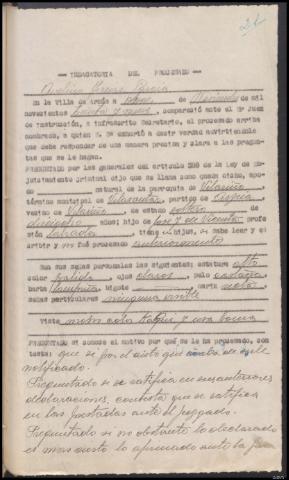 INDAGATORIA DEL PROCESADO
En la Villa de a de Noviembre de mil
novecientos treinta y , comparació ante el Sr Juez
de Instrucción, e infrascrito Secretario, el procesado arriba
nombrado, a quien S. Sª exhortó a decir verdad advirtiendole
que debe responder de una manera precisa y clara a las pregun-
tas que se le hagan.
PREGUNTADO por las generales del artículo 388 de la Ley de En-
juiciamiento criminal dijo que se llama como queda dicho, apo-
dado natural de la parroquia de
término municipal de partido de
vecino de de estado soltero de
edad; hijo de José y de Vicenta profe
sión labrador tiene hijos, si sabe leer y es
cribir y fué procesado anteriormente
Son sus señas personales las siguientes: estatura alto
color ojos claros, pelo castaño
barba bigote nariz
señas particulares ninguna visible
Viste mono color kaqui y usa boina
PREGUNTADO si conoce el motivo por qué se le ha procesado, con-
testa: que si por el auto que acaba de serle
notificado.
Preguntado si se ratifica en sus anteriores
declaraciones, contesta que se ratifica
en las prestadas ante el juzgado.
Preguntado si no obstante lo declarado
es mas cierto lo afirmado ante la